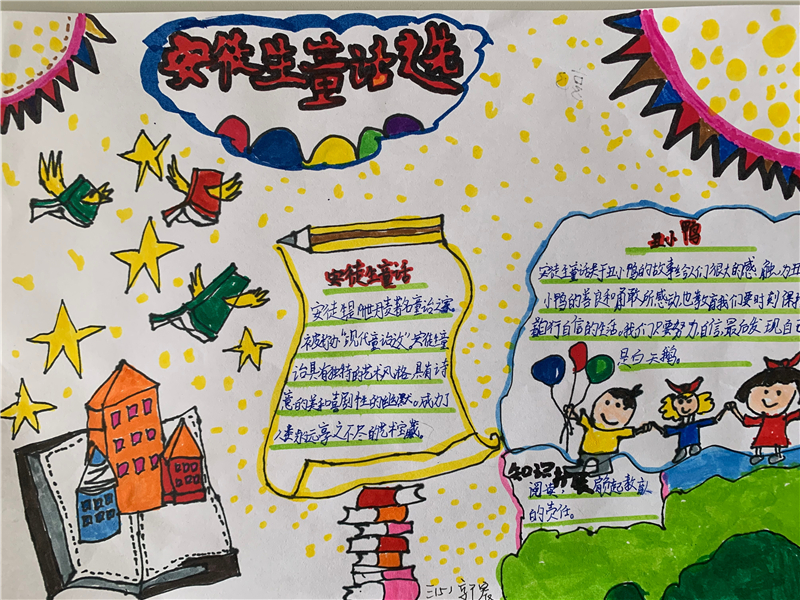 安徒生童话选
安徒生童话
安徒生是世界著名童话家
被称为“现代童话之父”安徒生童
话具有独特的艺术风格具有诗
意的美和喜剧性的幽默。成为了
人类永远享之不尽的艺术宝藏。
丑小鸭
安徒生童话关于丑小鸭的故事给我们很大的感触,为丑
小鸭的善良和勇敢所感动也教育我们要时刻保持
自信的生活。我们只要努力自信最后发现自己
是白天鹅。
知识
阅读,肩起教育
的责任。
三(5)